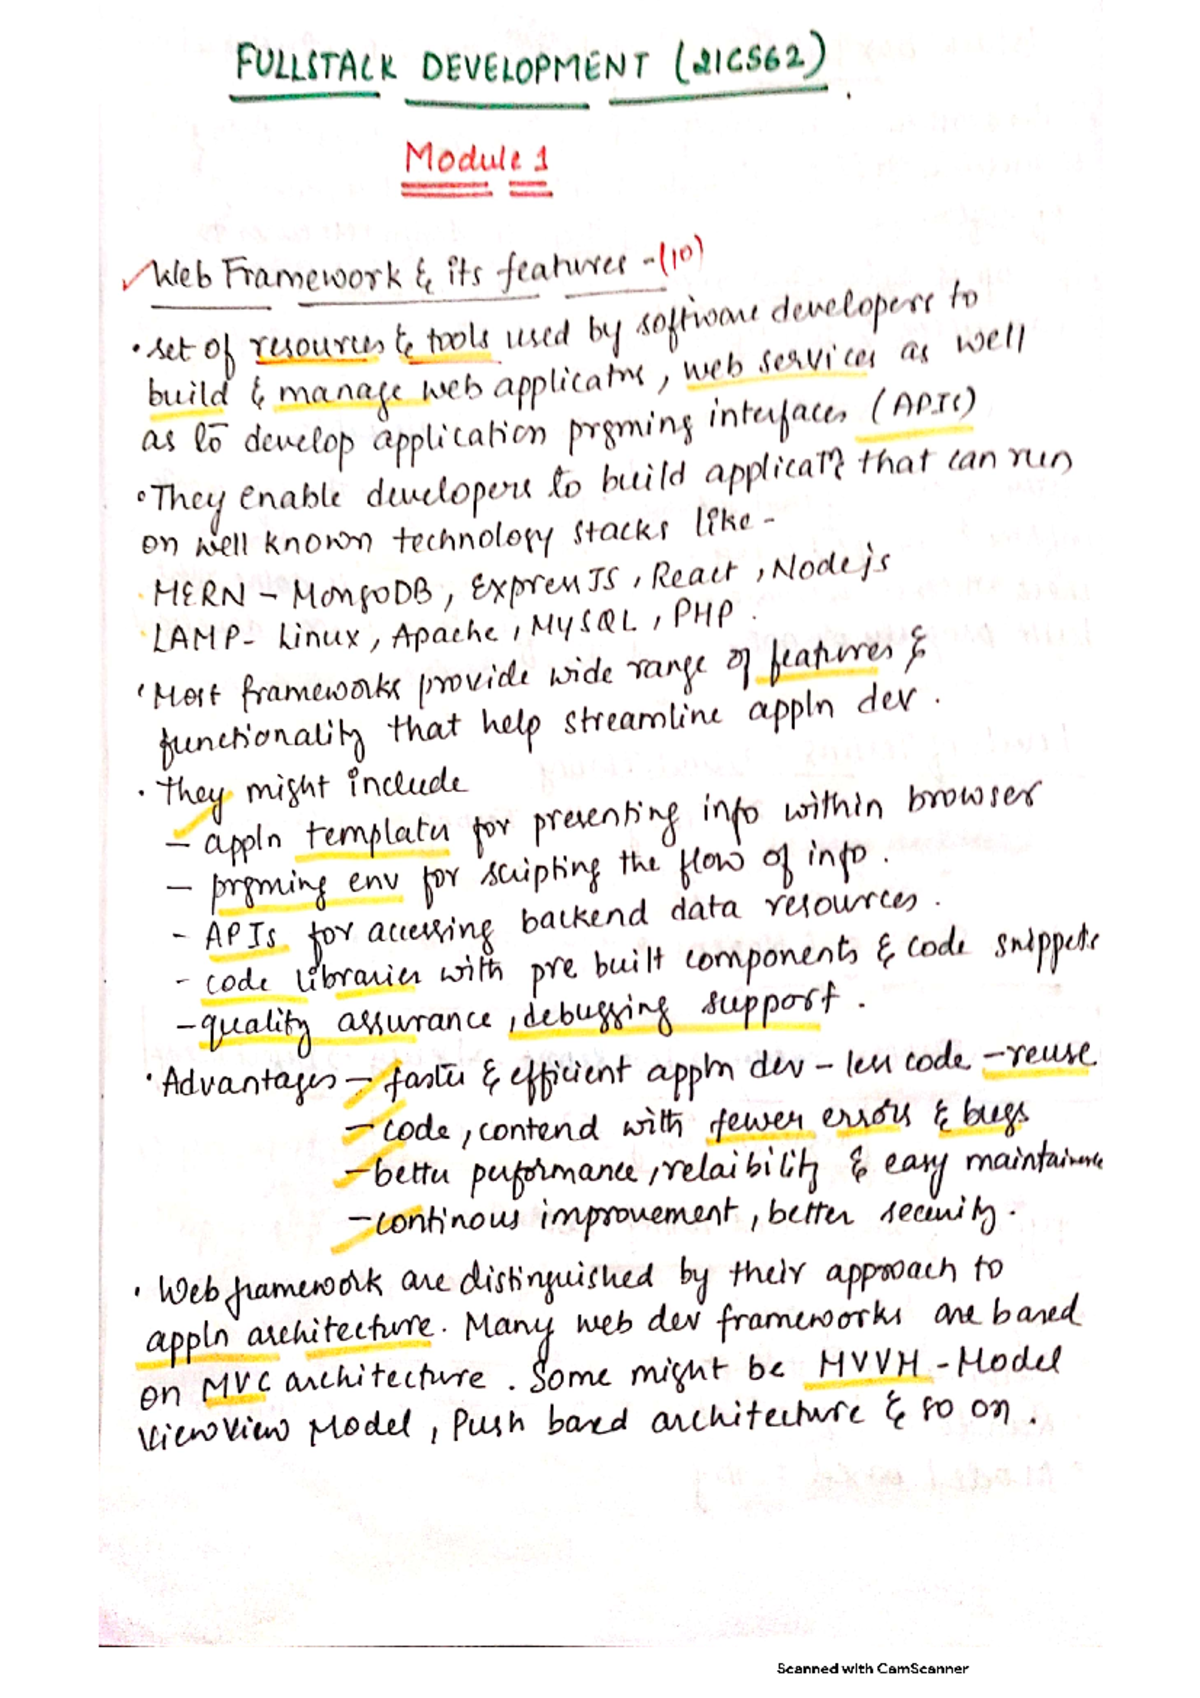 FULLSTACK DEVELOPMENT (21CS62).
Module 1
✓Web Framework & its features -(10)
• set of resources & tools used by software developers to
build & manage web applicatns, web services as well
as to develop application prgming interfaces (APIs)
• They enable developers to build applicatn that can run
on well known technology stacks like -
MERN - MongoDB, Express JS, React, Nodejs
LAMP- Linux, Apache, MySQL, PHP.
• Most frameworks provide wide range of features &
functionality that help streamline appln dev.
• they might include
- appln templates for presenting info within browser
- prgming env for scripting the flow of info.
- APIs for accessing backend data resources.
- code libraries with pre built components & code snippets
- quality assurance, debugging support.
• Advantages - faster & efficient appln dev - less code - reuse
- code, contend with fewer errors & bugs
- better performance, relaibility & easy maintainence
- continous improvement, better security.
• Web framework are distinguished by their approach to
appln architecture. Many web dev frameworks are based
on MVC architecture. Some might be MVVM - Model
ViewView Model, Push based architecture & so on.
Scanned with CamScanner